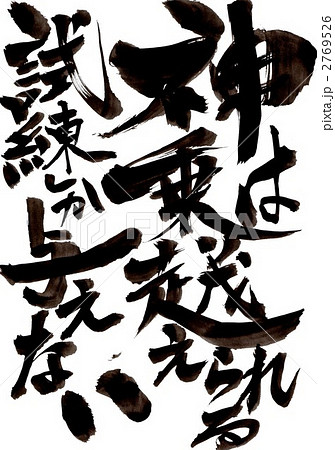 神は
乗越えられる
試練しか与えない
PIXTA
pixta.jp - 2769526